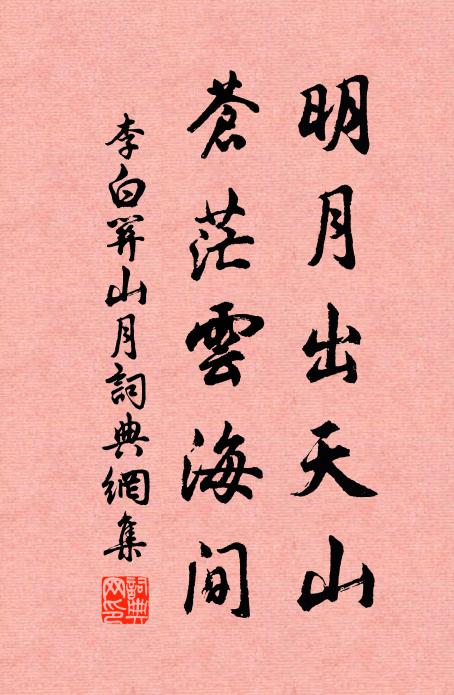 明月出天山
蒼茫雲海间
李白关山月詞典網集
詞典网印